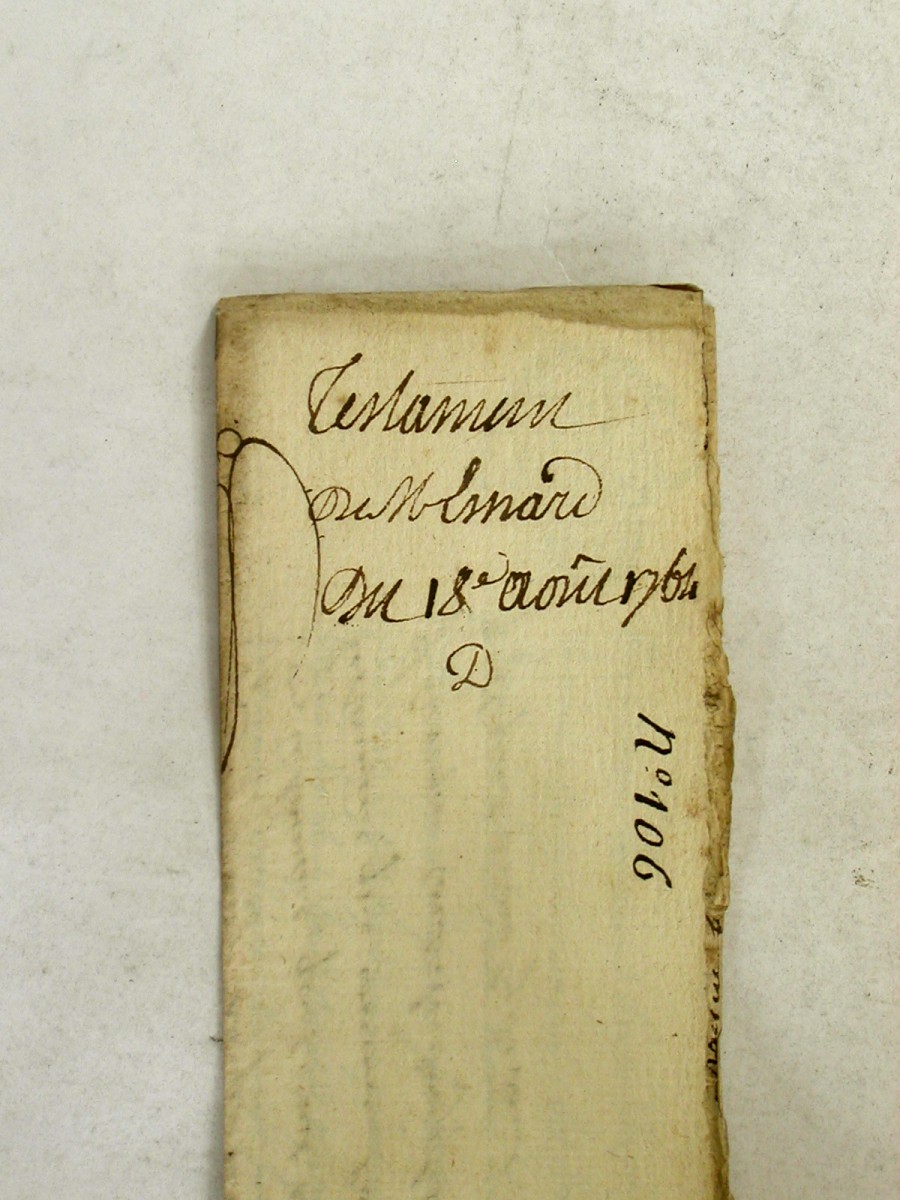 Testament
De Mr Emard
Du 18e août 1764
D
n° 106